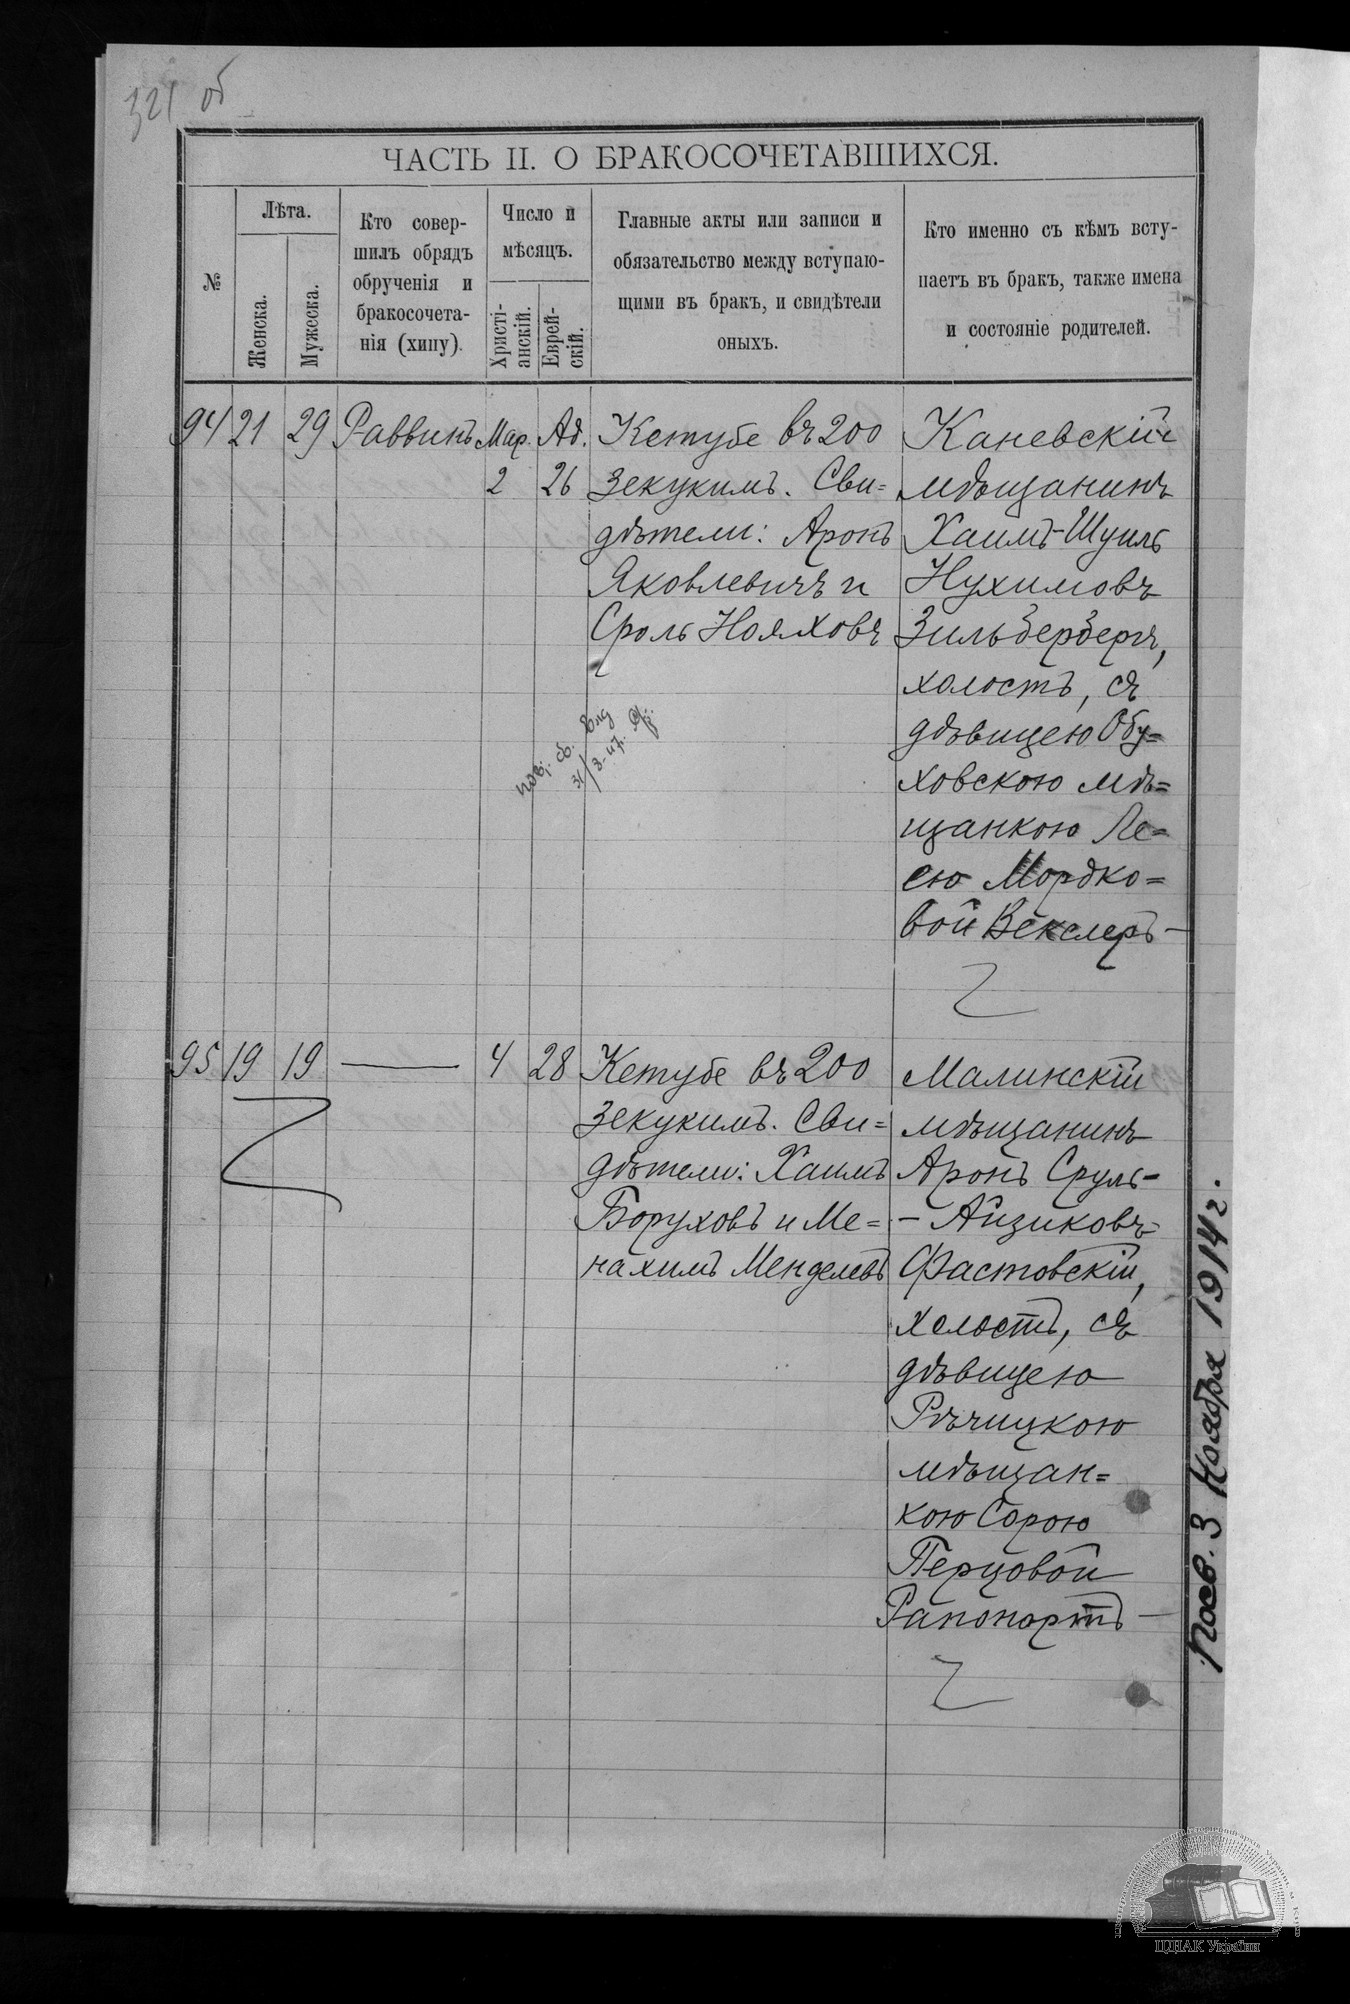 321 об
ЧАСТЬ II. О БРАКОСОЧЕТАВШИХСЯ.
№
Лѣта.
Женска.
Мужеска.
Кто совер-
шилъ обрядъ
обрученія и
бракосочета-
нія (хипу).
Число и
мѣсяцъ.
Христі-
анскій.
Еврей-
скій.
Главные акты или записи и
обязательство между вступаю-
щими въ бракъ, и свидѣтели
оныхъ.
Кто именно съ кѣмъ всту-
паетъ въ бракъ, также имена
и состояніе родителей.
94 21 29 Раввинъ Мар. Ад.
2 26
Кетубе въ 200
зекукимъ. Сви=
дѣтели: Аронъ
Яковлевичъ и
Сроль Нояховъ
Каневскій
мѣщанинъ
Хаимъ-Шуиль
Нухимовъ
Зильберберг,
холостъ, съ
дѣвицею Обу=
ховскою мѣ=
щанкою Ле=
ею Мордко=
вой Векслеръ
95 19 19 — 4 28
Кетубе въ 200
зекукимъ. Сви=
дѣтели: Хаимъ
Боруховъ и Ме=
нахимъ Менделевъ
Малинскій
мѣщанинъ
Аронъ Сруль-
- Айзиковъ
Фастовскій,
холостъ, съ
дѣвицею
Рѣчицкою
мѣщан=
кою Сорою
Перцовой
Рапопортъ
3 Ноября 1914 г.
ЦДІАК України